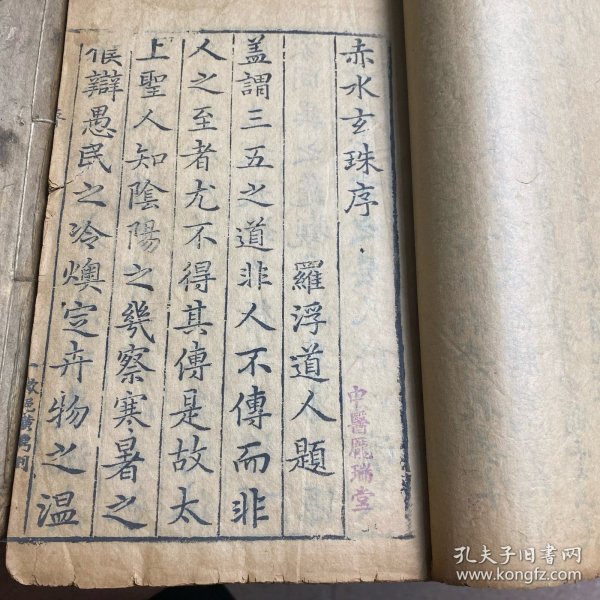 赤水玄珠序
羅浮道人題
蓋謂三五之道非人不傳而非
人之至者尤不得其傳是故太
上聖人知陰陽之幾察寒暑之
候辯愚民之冷燠定卉物之温
中醫龐瑞堂
孔夫子旧书网
www.kongfz.com